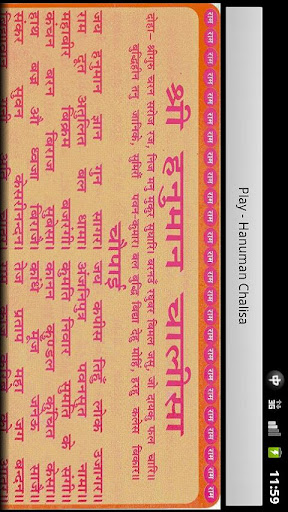 11:59
Play - Hanuman Chalisa
राम राम राम राम राम राम राम राम राम राम राम राम राम राम राम राम राम राम राम राम
श्री हनुमान चालीसा
दोहा - श्रीगुरु चरन सरोज रज, निज मनु मुकुर सुधारि। बरनउँ रघुबर बिमल जसु, जो दायकु फल चारि।
बुद्धिहीन तनु जानिके, सुमिरौं पवन-कुमार। बल बुद्धि बिद्या देहु मोहिं, हरहु कलेस बिकार।।
चौपाई
जय हनुमान ज्ञान गुन सागर। जय कपीस तिहुँ लोक उजागर।।
राम दूत अतुलित बल धामा। अंजनिपुत्र पवनसुत नामा।।
महाबीर बिक्रम बजरंगी। कुमति निवार सुमति के संगी।।
कंचन बरन बिराज सुबेसा। कानन कुण्डल कुंचित केसा।।
हाथ बज्र औ ध्वजा बिराजै। काँधे मूंज जनेऊ साजै।।
संकर सुवन केसरीनन्दन। तेज प्रताप महा जग बन्दन।।